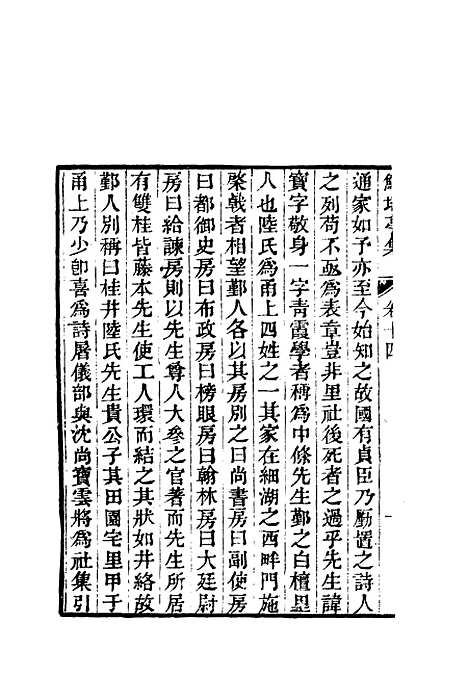 鮚埼亭集 卷十四
通家如予亦至今始知之故國有貞臣乃勵置之詩人
之列苟不亟爲表章豈非里社後死者之過乎先生諱
寶字敬身一字靑霞學者稱爲中條先生鄞之白檀里
人也陸氏爲甬上四姓之一其家在細湖之西畔門施
棨戟者相望鄞人各以其房別之曰尚書房曰副使房
曰都御史房曰布政房曰榜眼房曰翰林房曰大廷尉
房曰給諫房則以先生尊人大參之官著而先生所居
有雙桂皆藤本先生使工人環而結之其狀如井絡故
鄞人別稱曰桂井陸氏先生貴公子其田園宅里甲于
甬上乃少卽喜爲詩屠儀部與沈尚寶雲將爲社集引